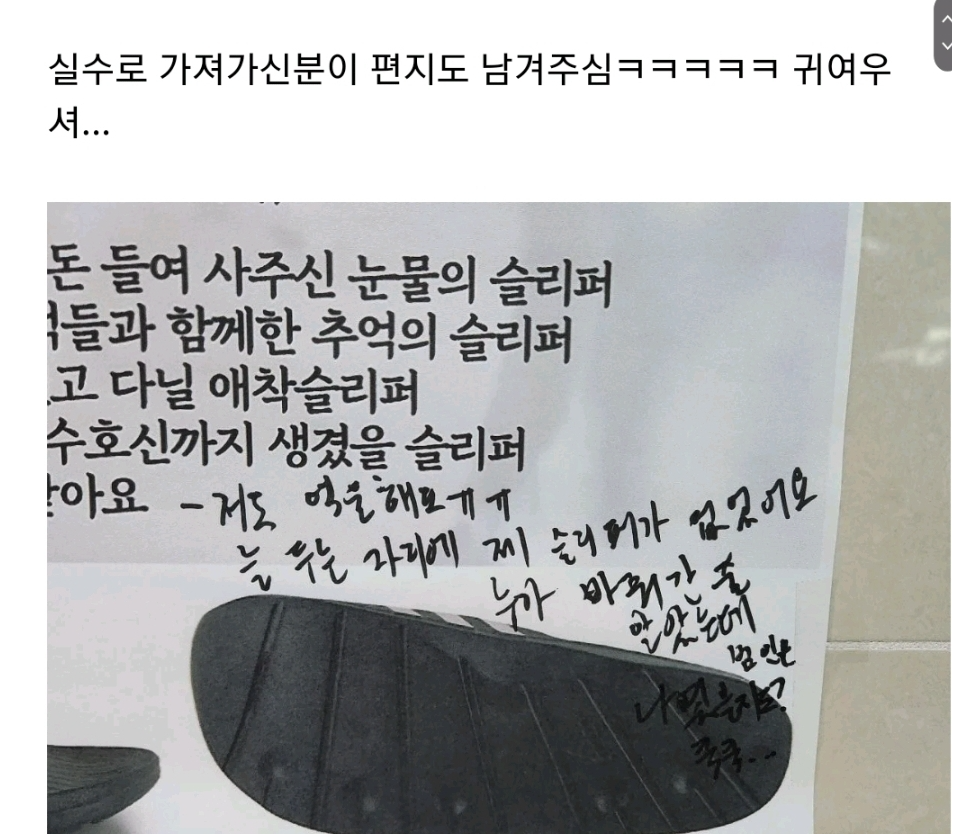 실수로 가져가신분이 편지도 남겨주심ㅋㅋㅋㅋㅋ 귀여우
셔...
돈 들여 사주신 눈물의 슬리퍼
들과 함께한 추억의 슬리퍼
고 다닐 애착슬리퍼
수호신까지 생겼을 슬리퍼
아요 - 저도 억울해요ㅔㅔ
늘 두는 자리에 제 슬리퍼가 없었어요
누가 바꿔간 줄
알았는데
범인은